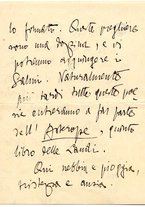 lo formato. Queste preghiere
sono una dozzina, e vi
potremo aggiungere i
Salmi. Naturalmente
più tardi tutte queste poe-
sie entreranno a far parte
dell' Asterope, quinto
libro delle Laudi.
Qui nebbia e pioggia,
tristezza e ansia.